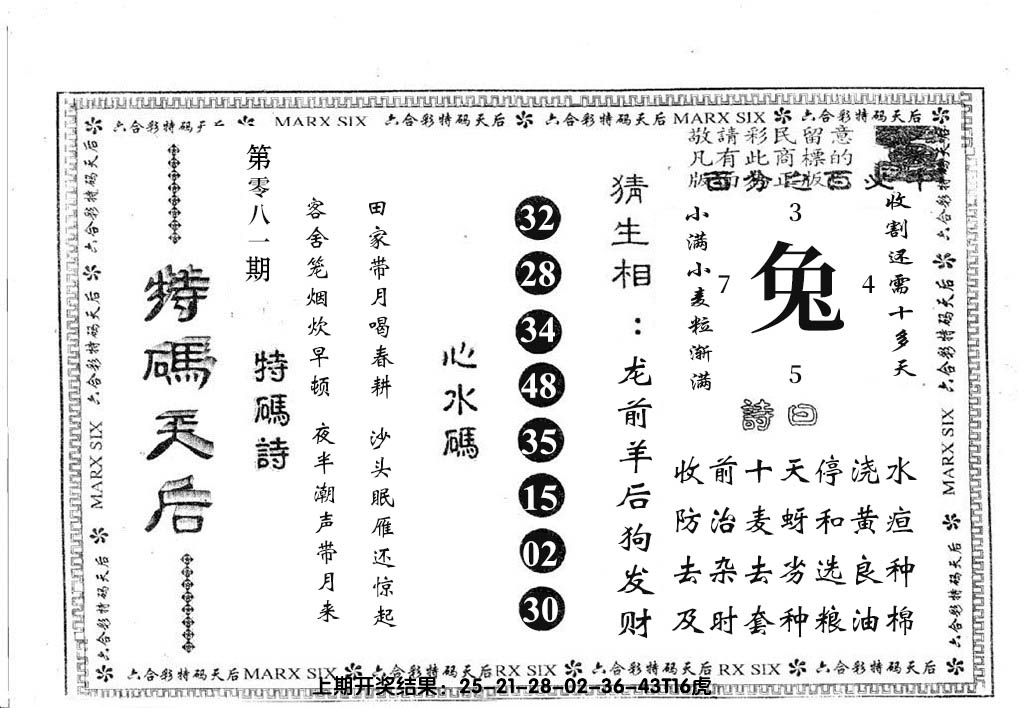 六合彩特码天后 MARX SIX 六合彩特码天后 六合彩特码天后 MARX SIX 六合彩特码天后
敬請彩民留意
凡有此商標的
版面分正版
收割还需十多天
3
兔
7
4
5
小满小麦粒渐满
詩曰
收前十天停浇水
防治麦蚜和黄疸
去杂去劣选良种
及时套种粮油棉
猜生相：龙前羊后狗发财
32
28
34
48
35
15
02
30
心水碼
田家带月喝春耕 沙头眠雁还惊起
客舍笼烟炊早顿 夜半潮声带月来
第零八一期
特碼詩
特碼天后
六合彩特码天后 六合彩特码天后 MARX SIX 六合彩特码天后
六合彩特码天后 六合彩特码天后 MARX SIX 六合彩特码天后
六合彩特码天后 MARX SIX 六合彩特码天后 RX SIX 六合彩特码天后 RX SIX 六合彩特码天后
上期开奖结果：25-21-28-02-36-43T16虎